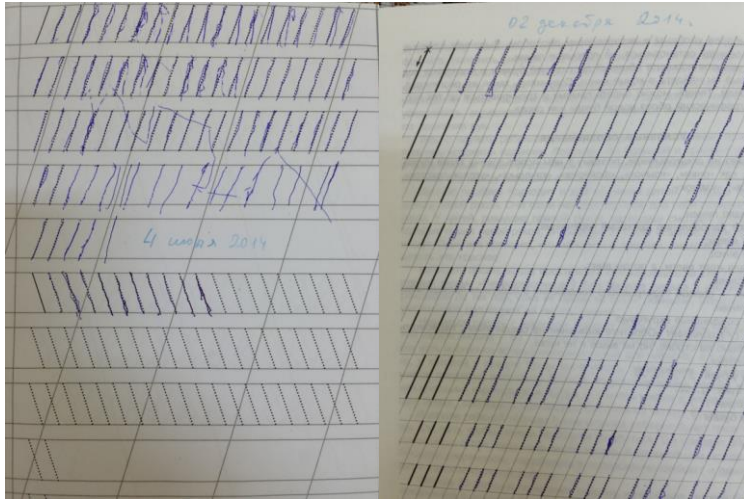 4 июля 2014
02 декабря 2014.